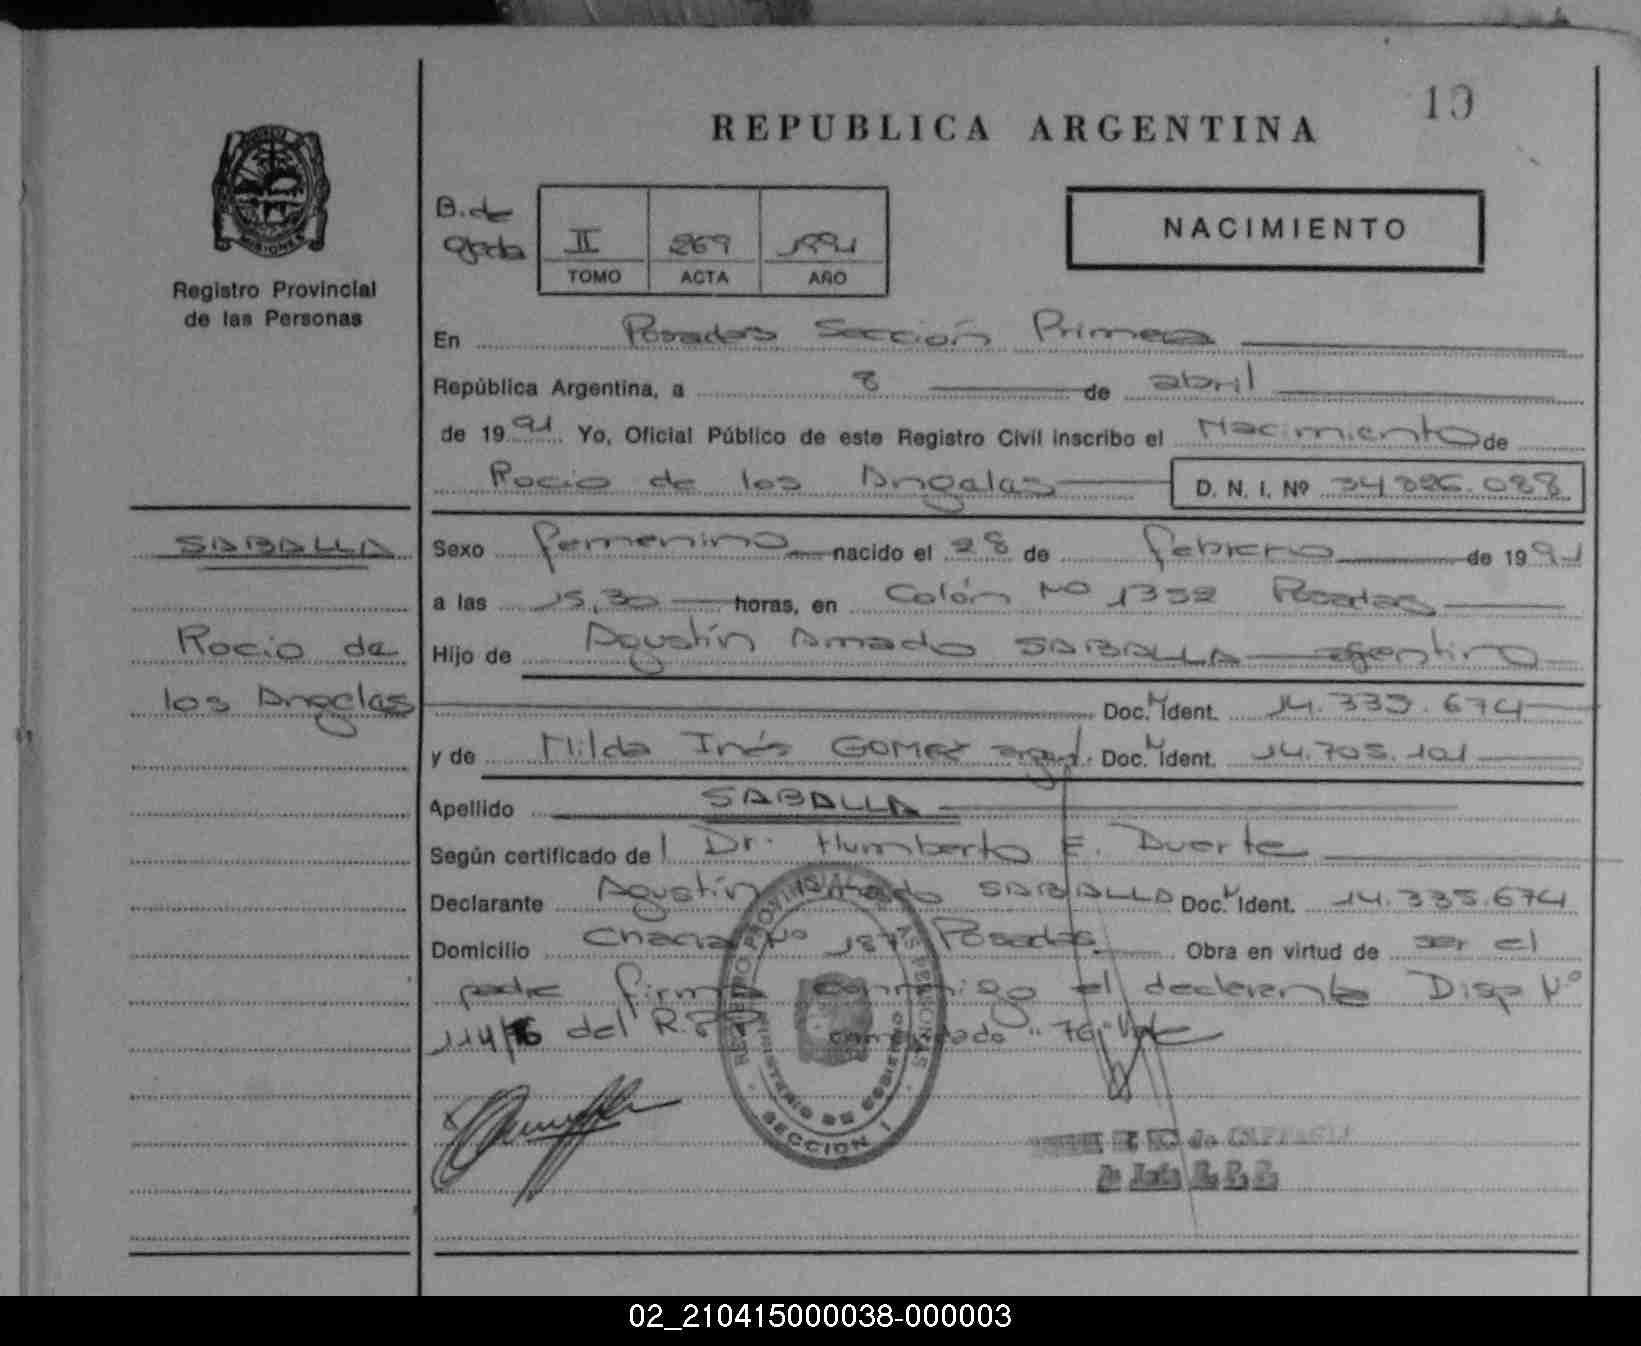 19
REPUBLICA ARGENTINA
B. de
II 269 1991
TOMO ACTA AÑO
NACIMIENTO
MISIONES
Registro Provincial
de las Personas
En Posadas Sección Primera
República Argentina, a 8 de abril
de 1991 Yo, Oficial Público de este Registro Civil inscribo el Nacimiento de
Rocio de los Angeles D. N. I. Nº
SABALLA
Sexo femenino nacido el 28 de febrero de 1991
a las 15,30 horas, en Colón Nº 1352 Posadas
Rocio de
Hijo de Agustín Amado SABALLA argentino
los Angeles
Doc. N Ident.
y de Nilda Inés GOMEZ argent. Doc. N Ident. 14.705.101
Apellido SABALLA
Según certificado de l Dr. Humberto E. Duarte
Declarante Agustín Amado SABALLA Doc. N Ident. 14.335.674
Domicilio Chacra Nº Posadas Obra en virtud de ser el
padre firma conmigo el declarante Disp Nº
114/76 del R.P.P. enmendado "76" Vale
REGISTRO PROVINCIAL DE LAS PERSONAS
MINISTERIO DE GOBIERNO
SECCION I
02_210415000038-000003